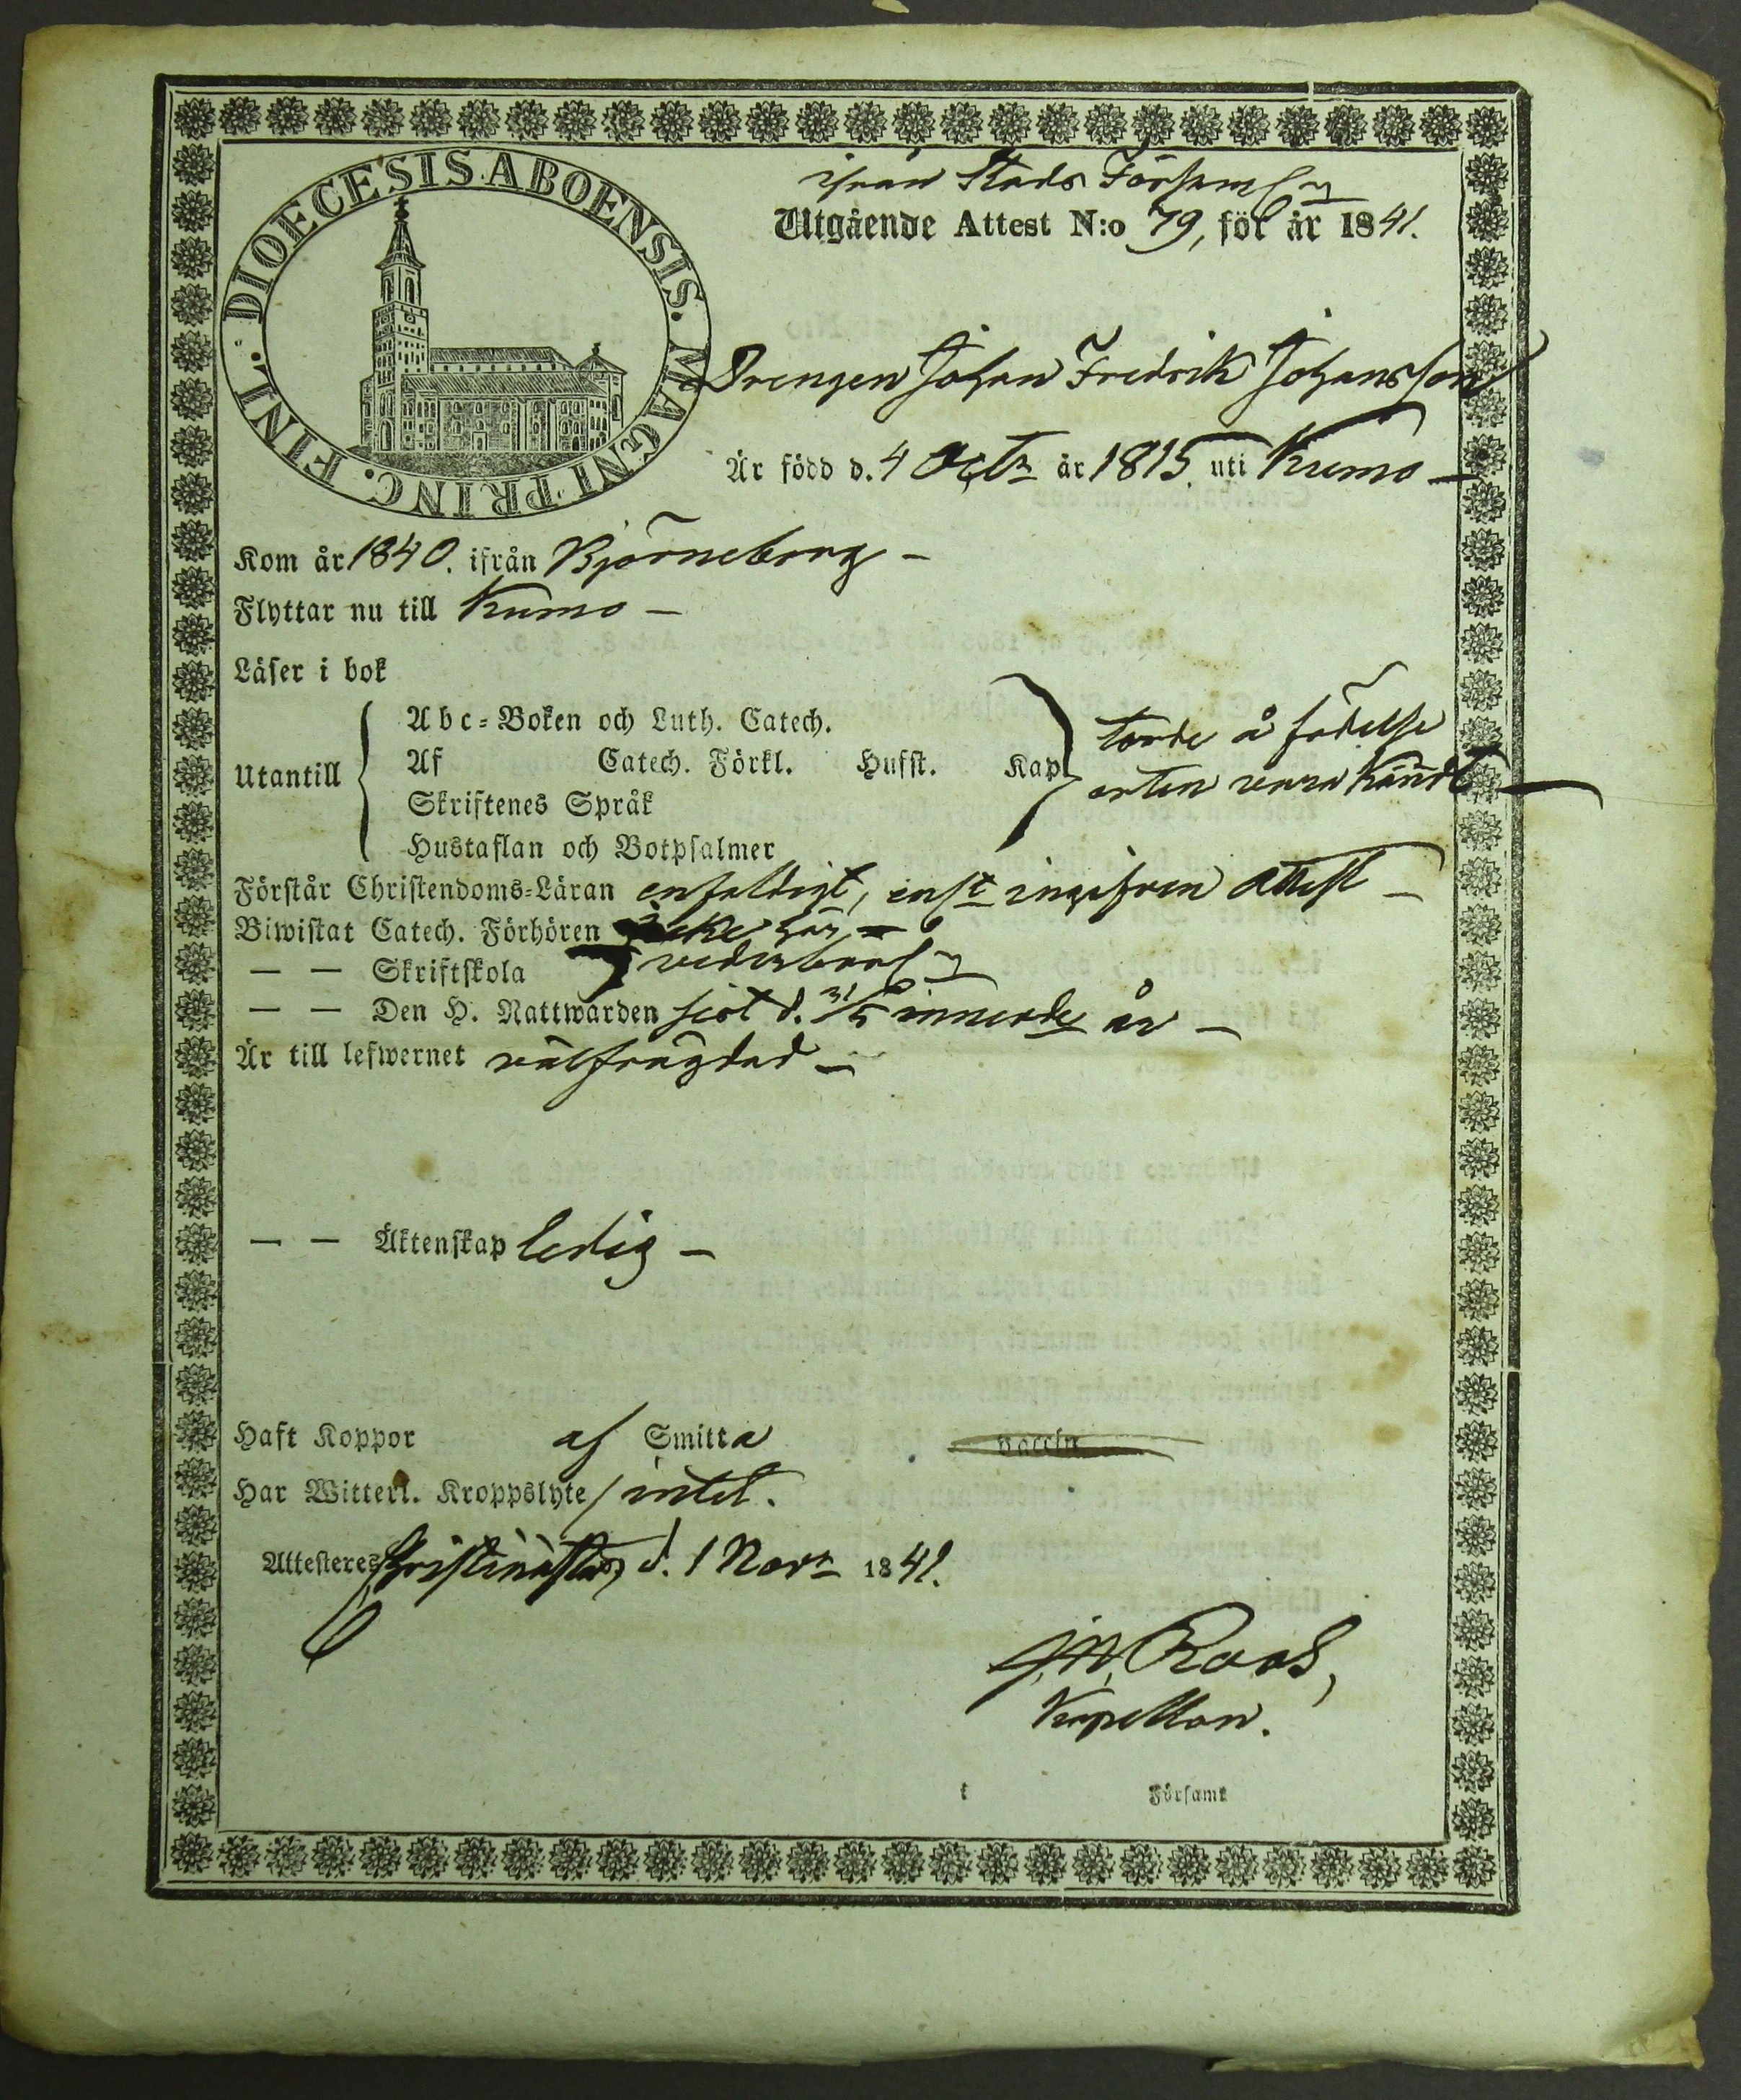 DIOECESIS ABOENSIS. MAGNI PRINC. FINL.
ifrån Stads Församl
Utgående Attest N:o 79, för år 1841.
Drengen Johan Fredrik Johansson
Är född d. 4 Octr år 1815. uti Kumo —
Kom år 1840. ifrån Björneborg —
Flyttar nu till Kumo —
Läser i bok
Utantill
Abc-Boken och Luth. Catech.
Af Catech. Förkl. Husst. Kap
Skriftenes Språk
Hustaflan och Botpsalmer
torde å födelse
orten vara kändt —
Förstår Christendoms-Läran enfaldigt, enlt attest —
Biwistat Catech. Förhören icke här —
— — Skriftskola
— — Den H. Nattwarden sist d. innevde år —
Är till lefwernet välfrägdad —
— — Äktenskap ledig —
Haft Koppor af Smitta vaccin
Har Witterl. Kroppslyte intet.
Attesteres Christinæstad, d. 1 Novr 1841.
Roos,
Kapellan.
t Församl